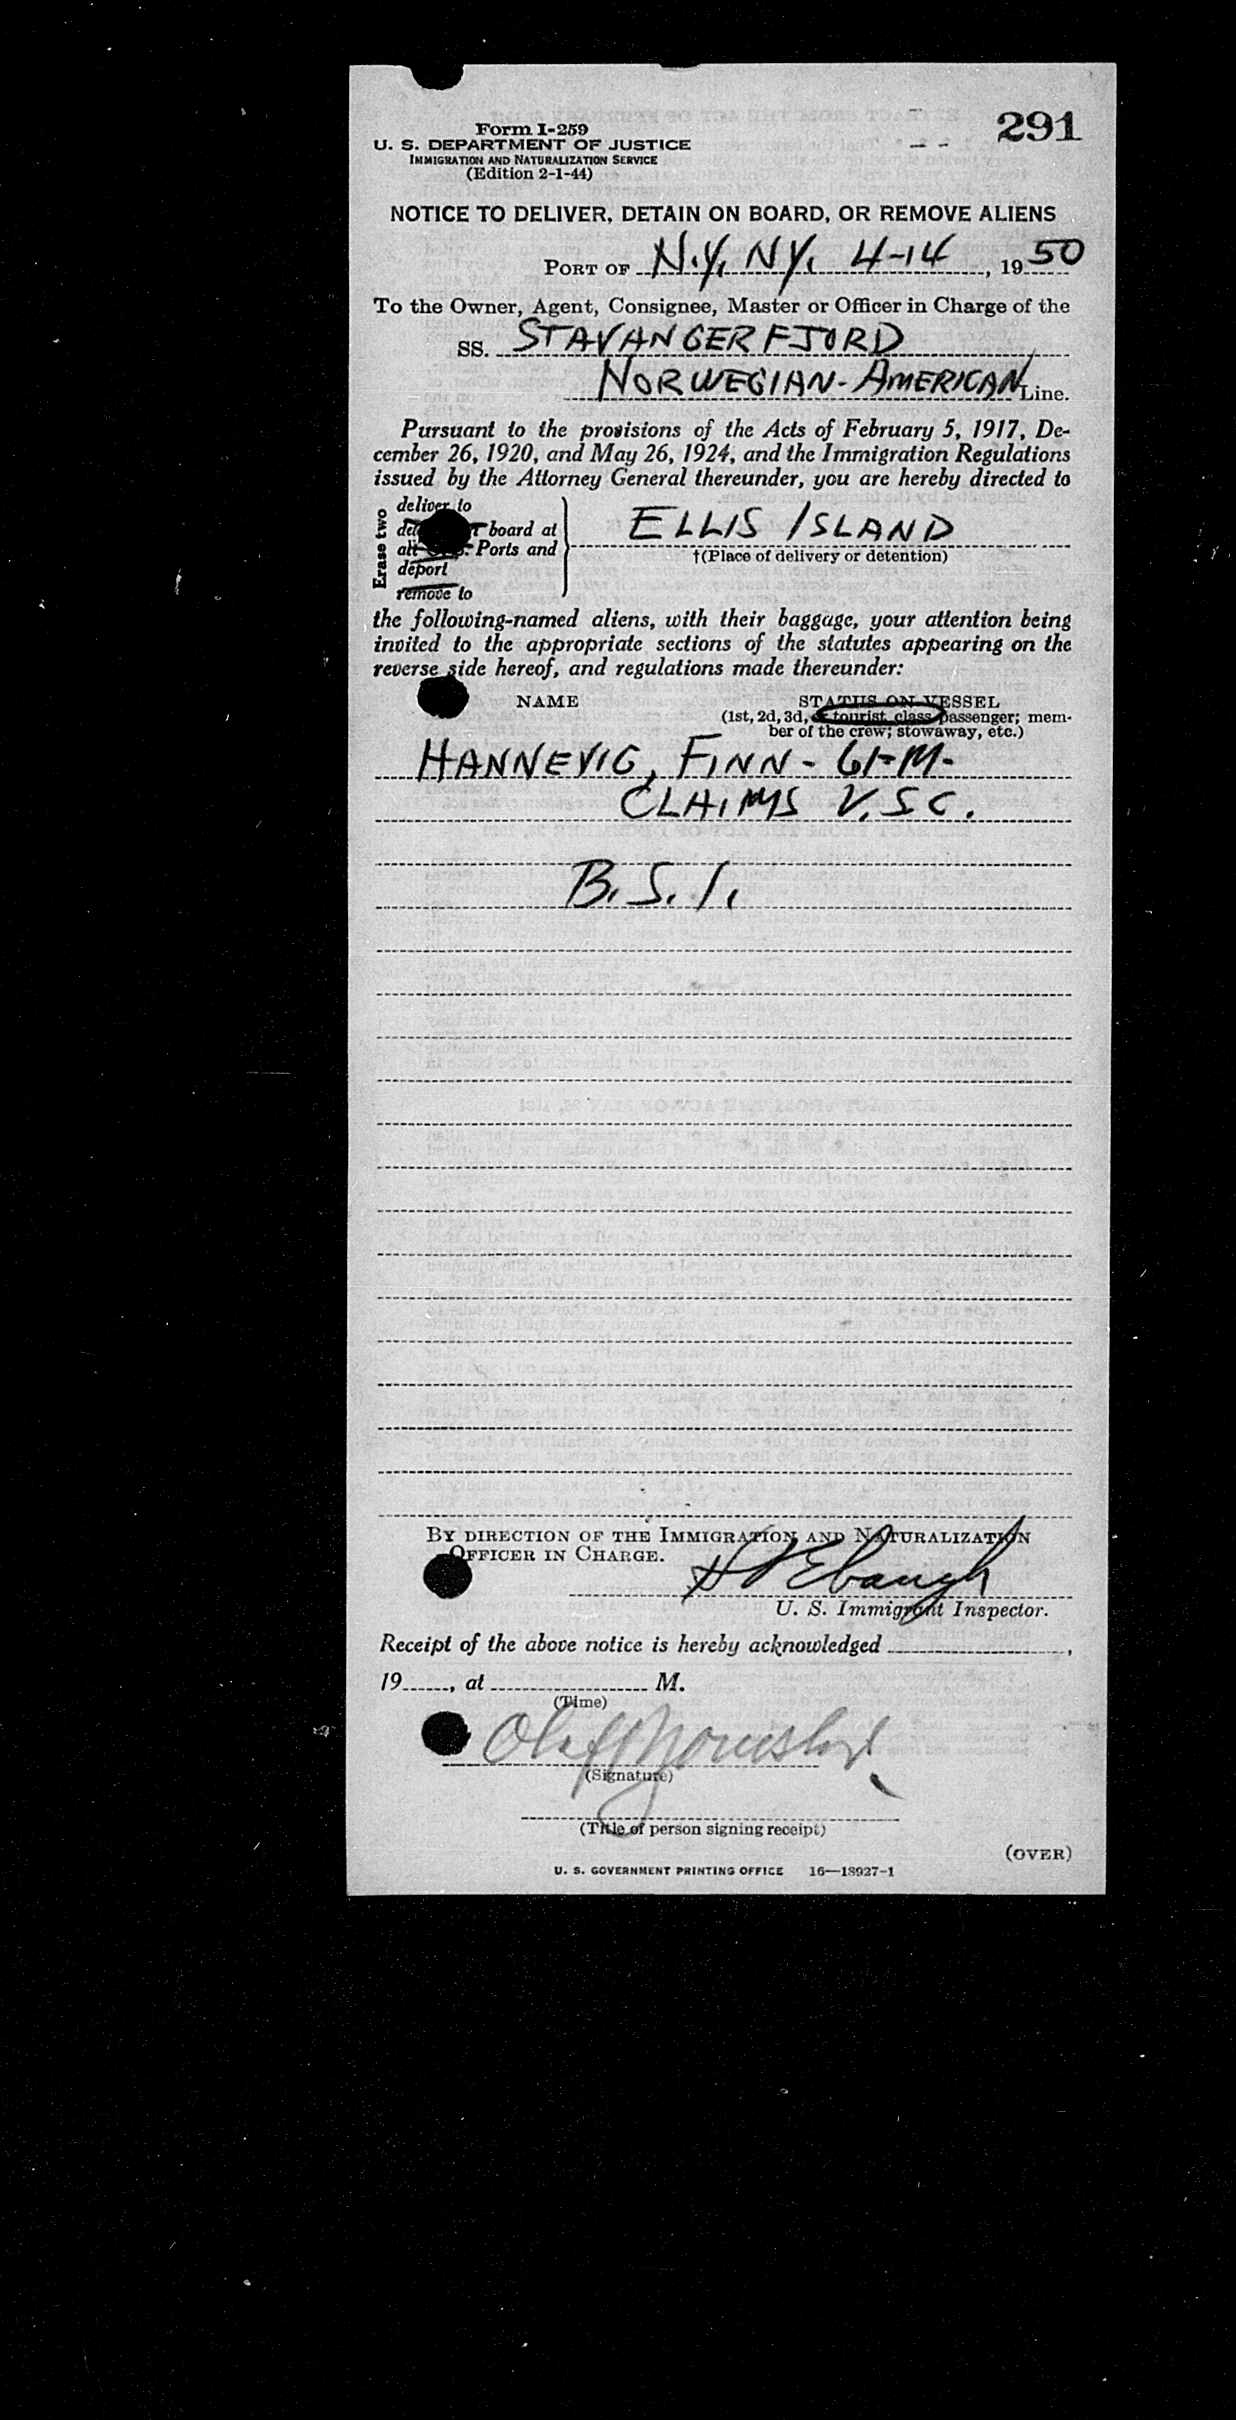 291
Form I-259
U. S. DEPARTMENT OF JUSTICE
IMMIGRATION AND NATURALIZATION SERVICE
(Edition 2-1-44)
NOTICE TO DELIVER, DETAIN ON BOARD, OR REMOVE ALIENS
PORT OF N.Y, NY. 4-14, 1950
To the Owner, Agent, Consignee, Master or Officer in Charge of the
SS. STAVANGERFJORD
NORWEGIAN-AMERICAN Line.
Pursuant to the provisions of the Acts of February 5, 1917, De-
cember 26, 1920, and May 26, 1924, and the Immigration Regulations
issued by the Attorney General thereunder, you are hereby directed to
Erase two
deliver to
board at
Ports and
deport
remove to
ELLIS ISLAND
†(Place of delivery or detention)
the following-named aliens, with their baggage, your attention being
invited to the appropriate sections of the statutes appearing on the
reverse side hereof, and regulations made thereunder:
NAME STATUS ON VESSEL
(1st, 2d, 3d, tourist class passenger; mem-
ber of the crew; stowaway, etc.)
HANNEVIG, FINN - 61-M-
CLAIMS V.S.C.
B.S.I.
BY DIRECTION OF THE IMMIGRATION AND NATURALIZATION
OFFICER IN CHARGE.
Ebaugh
U. S. Immigrant Inspector.
Receipt of the above notice is hereby acknowledged ,
19 , at M.
(Time)
Olaf
(Signature)
(Title of person signing receipt)
(OVER)
U. S. GOVERNMENT PRINTING OFFICE 16—18927-1